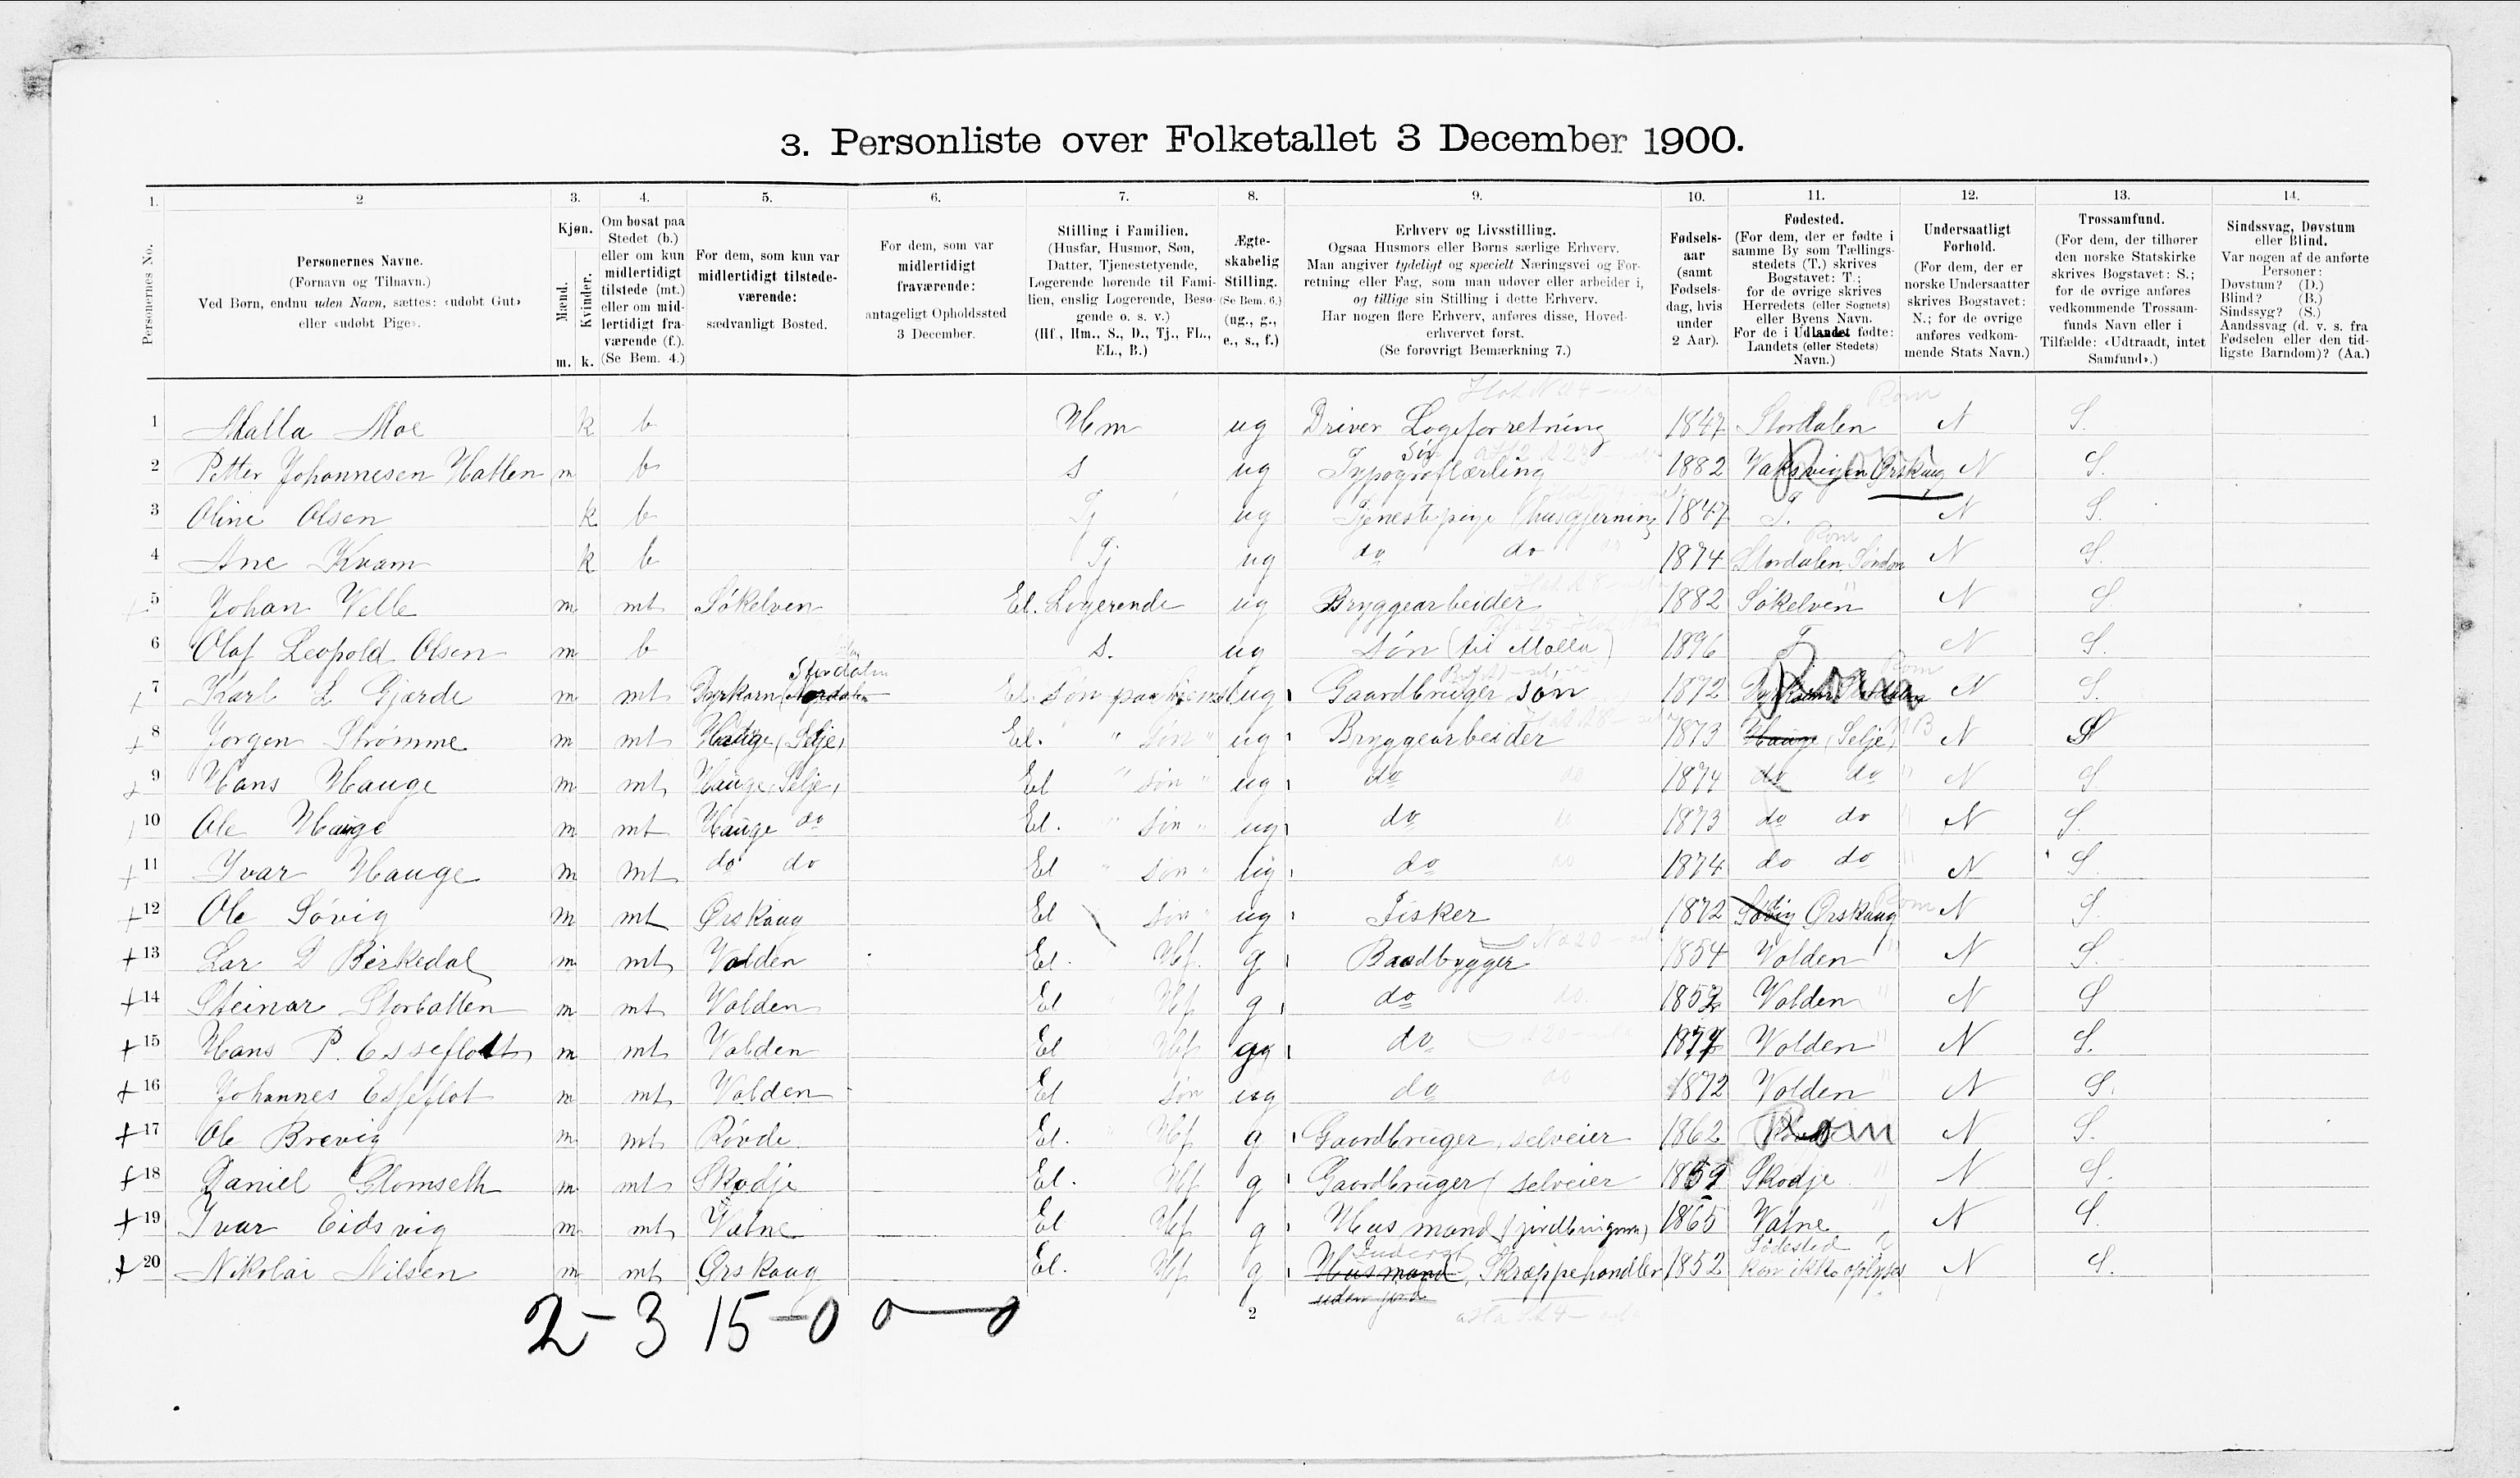 3. Personliste over Folketallet 3 December 1900.
1. 2 3. 4. 5. 6. 7. 8. 9. 10. 11. 12. 13. 14.
Personernes No.
Personernes Navne.
(Fornavn og Tilnavn.)
Ved Børn, endnu uden Navn, sættes: «udøbt Gut»
eller «udøbt Pige».
Kjøn.
Mænd. Kvinder.
m. k.
Om bosat paa
Stedet (b.)
eller om kun
midlertidigt
tilstede (mt.)
eller om mid-
lertidigt fra-
værende (f.).
(Se Bem. 4.)
For dem, som kun var
midlertidigt tilstede-
værende:
sædvanligt Bosted.
For dem, som var
midlertidigt
fraværende:
antageligt Opholdssted
3 December.
Stilling i Familien.
(Husfar, Husmor, Søn,
Datter, Tjenestetyende,
Logerende hørende til Fami-
lien, enslig Logerende, Besø-
gende o. s. v.)
(Hf., Hm., S., D., Tj., FL.,
EL., B.)
Ægte-
skabelig
Stilling.
(Se Bem. 6.)
(ug., g.,
e., s., f.)
Erhverv og Livsstilling.
Ogsaa Husmors eller Børns særlige Erhverv.
Man angiver tydeligt og specielt Næringsvei og For-
retning eller Fag, som man udøver eller arbeider i,
og tillige sin Stilling i dette Erhverv.
Har nogen flere Erhverv, anføres disse, Hoved-
erhvervet først.
(Se forøvrigt Bemærkning 7.)
Fødsels-
aar
(samt
Fødsels-
dag, hvis
under
2 Aar).
Fødested.
(For dem, der er fødte i
samme By som Tællings-
stedets (T.) skrives
Bogstavet: T.;
for de øvrige skrives
Herredets (eller Sognets)
eller Byens Navn.
For de i Udlandet fødte:
Landets (eller Stedets)
Navn.)
Undersaatligt
Forhold.
(For dem, der er
norske Undersaatter
skrives Bogstavet:
N.; for de øvrige
anføres vedkom-
mende Stats Navn.)
Trossamfund.
(For dem, der tilhører
den norske Statskirke
skrives Bogstavet: S.;
for de øvrige anføres
vedkommende Trossam-
funds Navn eller i
Tilfælde: «Udtraadt, intet
Samfund».)
Sindssvag, Døvstum
eller Blind.
Var nogen af de anførte
Personer:
Døvstum? (D.)
Blind? (B.)
Sindssyg? (S.)
Aandssvag (d. v. s. fra
Fødselen eller den tid-
ligste Barndom)? (Aa.)
1 Malla Moe k b Hm ug Driver Logeforretning 1847 Stordalen Rom N S.
2 Petter Johannesen Hatlen m b s ug Typograflærling 1882 Vaksvigen Ørskaug N S.
3 Oline Olsen k b Tj ug Tjenestepige (husgjerning 1847 T. N S.
4 Ane Kvam k b Tj ug do do 1874 Stordalen Søndm Rom N S.
5 Johan Velle m mt Søkelven El. Logerende ug Bryggearbeider 1882 Søkelven " N S
6 Olaf Leopold Olsen m b s. ug søn (til Malla) 1896 T N S.
7 Karl L Gjærde m mt Dyrkorn Stordalen El. søn ug Gaardbruger søn 1872 Rom N S.
8 Jørgen Strømme m mt Hauge (Selje) El. " søn " ug Bryggearbeider 1873 Hauge (Selje) N S
9 Hans Hauge m mt Hauge, Selje, El " søn " ug do do 1874 do do " N S
10 Ole Hauge m mt Hauge do El. " søn " ug do 1873 do do " N S.
11 Ivar Hauge m mt do do El " søn " ug do do 1874 do do " N S.
12 Ole Søvig m mt Ørskaug El søn " ug Fisker 1872 Søvig Ørskaug Rom N S.
13 Lar D Birkedal m mt Volden El. Hf. g Baadbygger 1854 Volden " N S.
14 Steinar Storbatten m mt Volden El Hf g do do 1852 Volden " N S
15 Hans P. Esseflott m mt Volden El Hf g do 1877 Volden " N S.
16 Johannes Esseflot m mt Volden El søn ug do do 1872 Volden " N S.
17 Ole Brevig m mt Røvde El. Hf g Gaardbruger, selveier 1862 Rom N S.
18 Daniel Glomseth m mt Skodje El. Hf g Gaardbruger (selveier 1859 Skodje " N S.
19 Ivar Eidsvig m mt Vatne El Hf g Husmand 1865 Vatne " N S.
20 Nikolai Nilsen m mt Ørskaug El. Hf g Inderst Husmand, Skræppehandler 1852 Fødested kan ikke oplyses N S.
uden jord
2 - 3 15 - 0 0 - 0
2